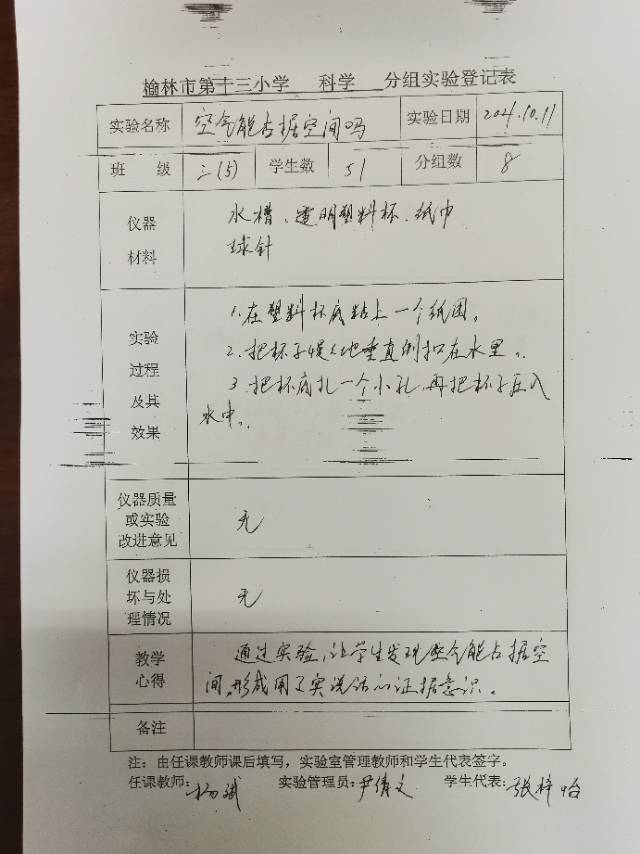 榆林市第十三小学 科学 分组实验登记表
实验名称 空气能占据空间吗 实验日期 2021.10.11
班 级 三(5) 学生数 51 分组数 8
仪器
材料
水槽、透明塑料杯、纸巾
球针
实验
过程
及其
效果
1.在塑料杯底粘上一个纸团。
2.把杯子慢慢地垂直倒扣在水里。
3.把杯底扎一个小孔,再把杯子压入
水中。
仪器质量
或实验
改进意见
无
仪器损
坏与处
理情况
无
教学
心得
通过实验,让学生发现空气能占据空
间,形成用了实说话的证据意识。
备注
注:由任课教师课后填写,实验室管理教师和学生代表签字。
任课教师:杨斌 实验管理员:尹倩文 学生代表:张梓怡